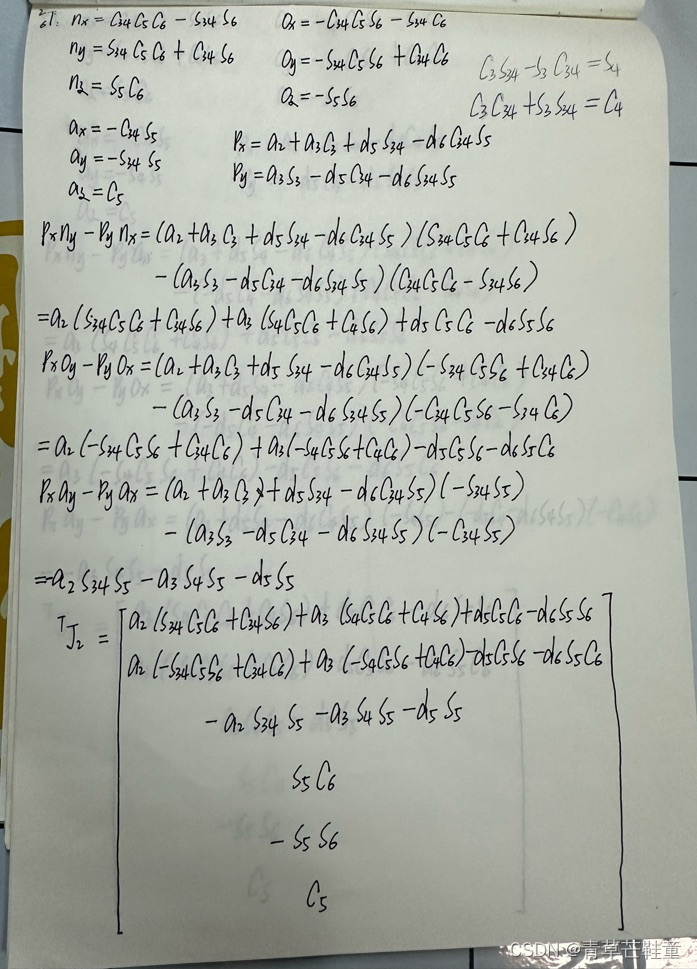 ²₆T: nx = C34 C5 C6 - S34 S6 Ox = -C34 C5 S6 - S34 C6
ny = S34 C5 C6 + C34 S6 Oy = -S34 C5 S6 + C34 C6
nz = S5 C6 Oz = -S5 S6
C3 S34 - S3 C34 = S4
C3 C34 + S3 S34 = C4
ax = -C34 S5 Px = a2 + a3 C3 + d5 S34 - d6 C34 S5
ay = -S34 S5 Py = a3 S3 - d5 C34 - d6 S34 S5
az = C5
Px ny - Py nx = (a2 + a3 C3 + d5 S34 - d6 C34 S5) (S34 C5 C6 + C34 S6)
- (a3 S3 - d5 C34 - d6 S34 S5) (C34 C5 C6 - S34 S6)
= a2 (S34 C5 C6 + C34 S6) + a3 (S4 C5 C6 + C4 S6) + d5 C5 C6 - d6 S5 S6
Px Oy - Py Ox = (a2 + a3 C3 + d5 S34 - d6 C34 S5) (-S34 C5 S6 + C34 C6)
- (a3 S3 - d5 C34 - d6 S34 S5) (-C34 C5 S6 - S34 C6)
= a2 (-S34 C5 S6 + C34 C6) + a3 (-S4 C5 S6 + C4 C6) - d5 C5 S6 - d6 S5 C6
Px ay - Py ax = (a2 + a3 C3 + d5 S34 - d6 C34 S5) (-S34 S5)
- (a3 S3 - d5 C34 - d6 S34 S5) (-C34 S5)
= -a2 S34 S5 - a3 S4 S5 - d5 S5
ᵀJ₂ =
a2 (S34 C5 C6 + C34 S6) + a3 (S4 C5 C6 + C4 S6) + d5 C5 C6 - d6 S5 S6
a2 (-S34 C5 S6 + C34 C6) + a3 (-S4 C5 S6 + C4 C6) - d5 C5 S6 - d6 S5 C6
- a2 S34 S5 - a3 S4 S5 - d5 S5
S5 C6
- S5 S6
C5
CSDN @青草芒鞋童